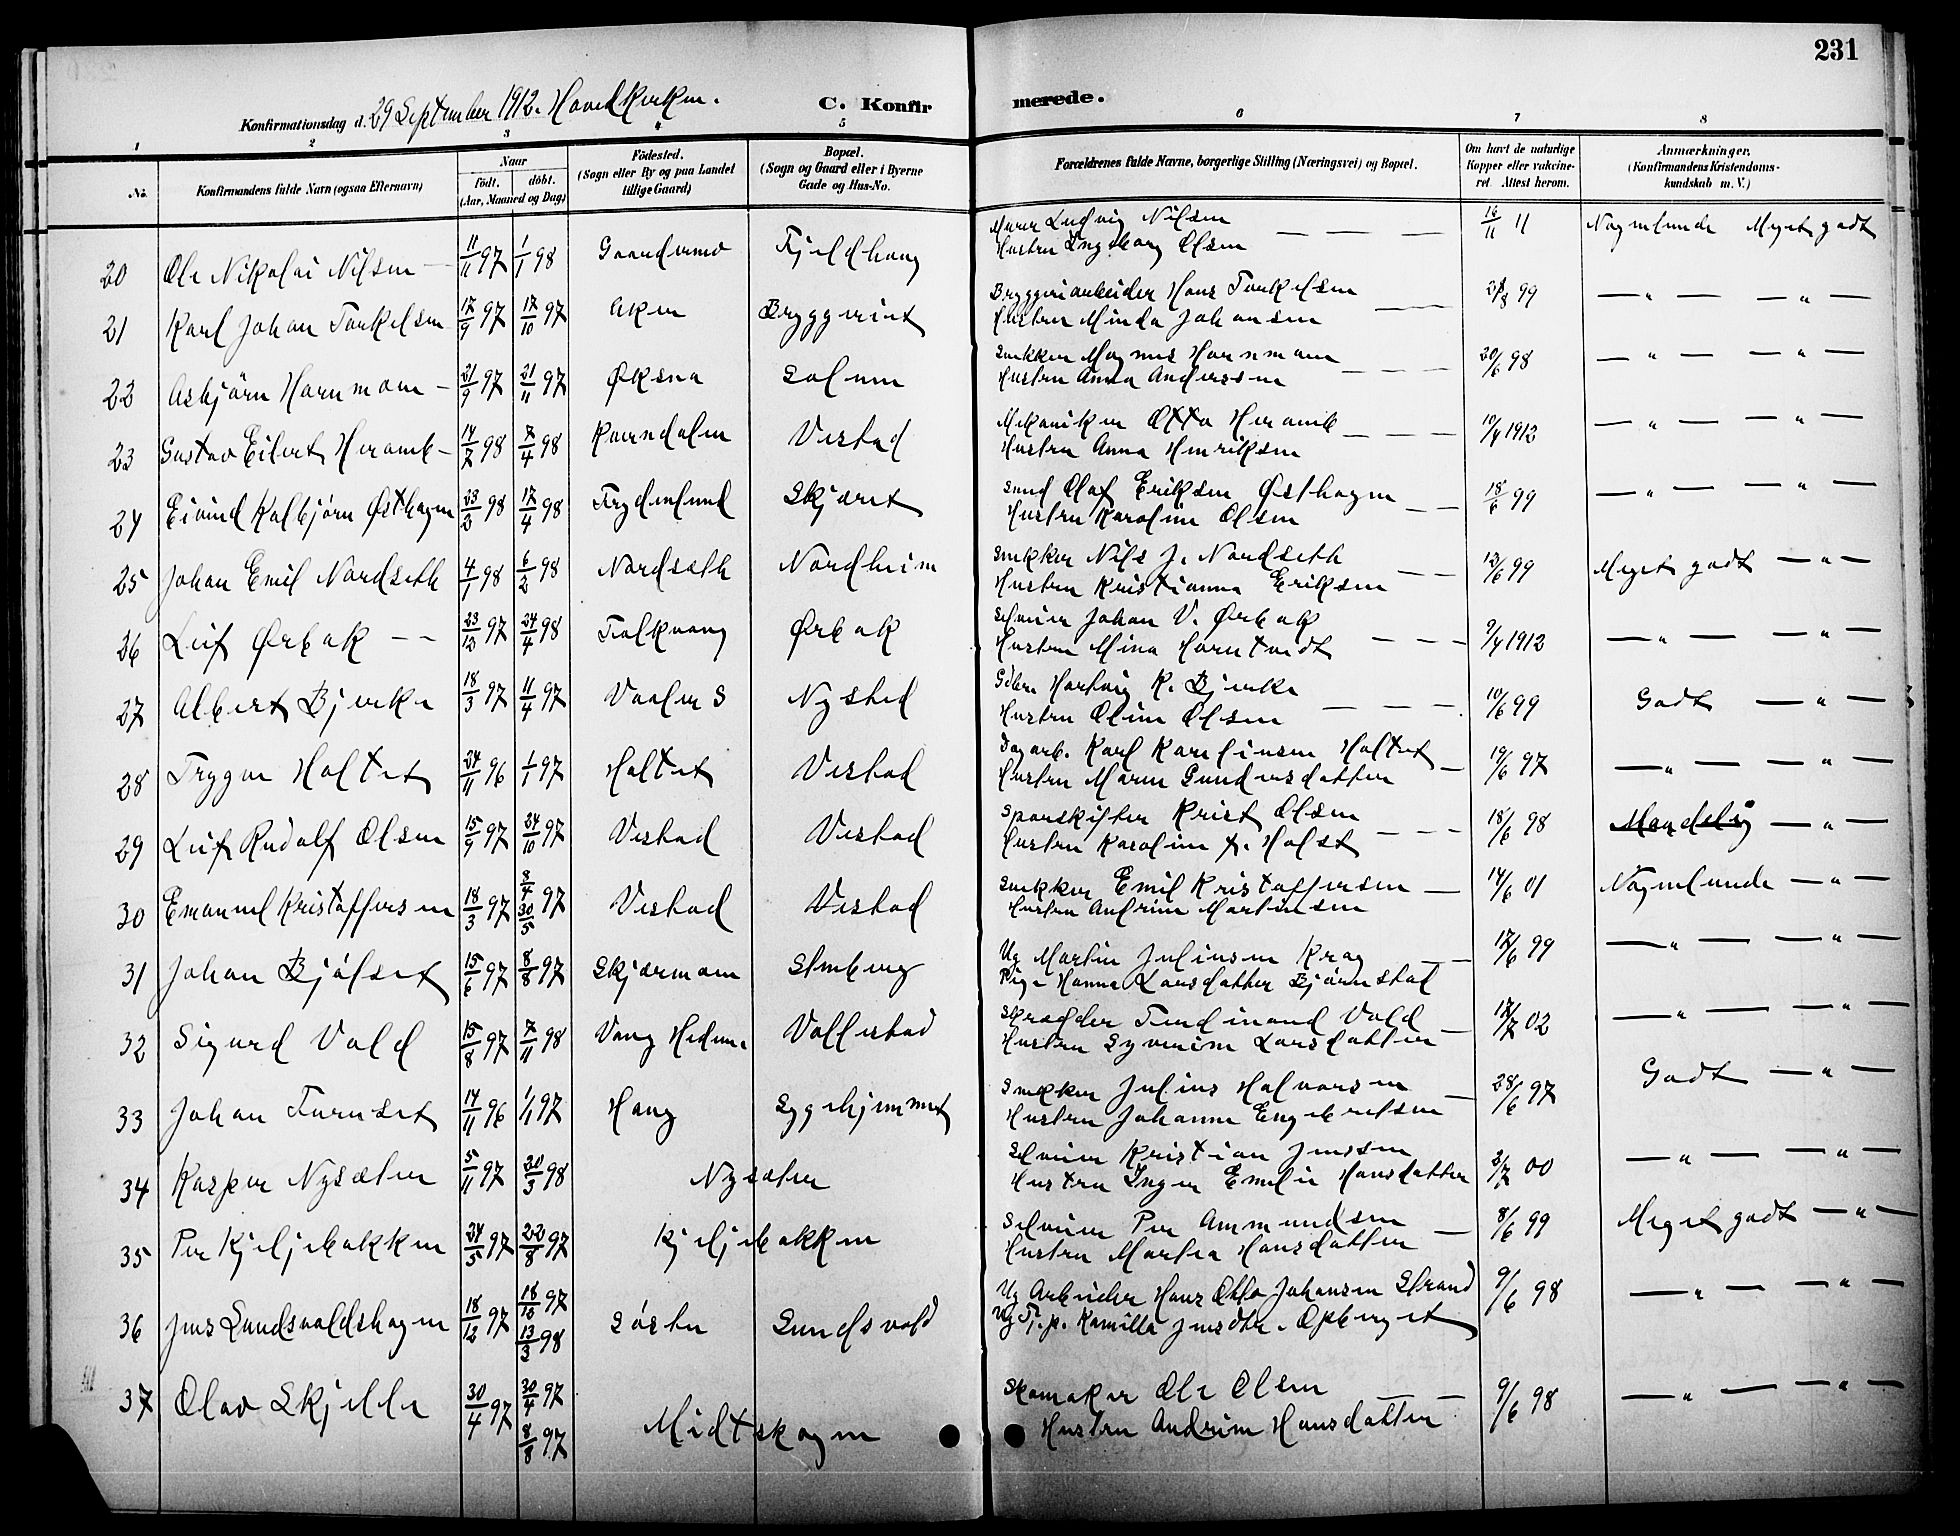 231
Konfirmationsdag d. 29 September 1912. Hovedkirken. C. Konfirmerede.
1 2 3 4 5 6 7 8
No. Konfirmandens fulde Navn (ogsaa Efternavn) Naar født. døbt. (Aar, Maaned og Dag) Fødested. (Sogn eller By og paa Landet tillige Gaard) Bopæl. (Sogn og Gaard eller i Byerne Gade og Hus-No. Forældrenes fulde Navne, borgerlige Stilling (Næringsvei) og Bopæl. Om havt de naturlige Kopper eller vaccineret. Attest herom. Anmærkninger. (Konfirmandens Kristendomskundskab m. V.)
20 Ole Nikolai Nilsen — 11/11 97 1/1 98 Fjeldhaug Murer Ludvig Nilsen 16/11 11 Nogenlunde Meget godt
Hustru Ingeborg Olsen — — —
21 Karl Johan Torkelsen 17/9 97 17/10 97 Aker Bryggeriet Bryggeriarbeider Hans Torkelsen 99 — " — — " —
Hustru Minda Johansen — —
22 Asbjørn Hornmoen — 21/9 97 21/11 97 Øksna Solum Snekker Magnus Hornmoen 20/6 98 — " — — " —
Hustru Anna Anderssen — — —
23 Gustav Eilert Heramb — 14/2 98 7/4 98 Kverndalen Vestad Mekaniker Otto Heramb 10/4 1912 — " — " —
Hustru Anna Henriksen — — —
24 Eivind Kolbjørn Østhagen 23/2 98 17/4 98 Frydenlund Skjæret Smed Olaf Eriksen Østhagen 18/6 99 — " — — " —
Hustru Karoline Olsen — —
25 Johan Emil Nordseth 4/1 98 6/2 98 Nordseth Nordheim Snekker Nils J. Nordseth 12/6 99 Meget godt — " —
Hustru Kristianna Eriksen — —
26 Leif Ørbak — — 23/12 97 24/4 98 Folkvang Ørbak Selveier Johan V. Ørbak 9/4 1912 — " — — " —
Hustru Mina Horntvedt — — —
27 Albert Bjerke 18/3 97 11/4 97 Vaaler S Nysted Hartvig K. Bjerke 10/6 99 Godt — " —
Hustru Oline Olsen — — —
28 Trygve Holtet 24/11 96 1/1 97 Holtet Vestad Dagarb. Karl Karelinsen Holtet 19/6 97 — " — — " —
Hustru Maren Gundersdatter —
29 Leif Rudolf Olsen 15/9 97 24/10 97 Vestad Vestad Sporskifter Krist. Olsen 18/6 98 Mandelig — " —
Hustru Karoline f. Holst — — —
30 Emanuel Kristoffersen 18/3 97 8/4 30/5 97 Vestad Vestad Snekker Emil Kristoffersen — 14/6 01 Nogenlunde — " —
Hustru Andrine Martinsen
31 Johan Bjølset 15/6 97 8/8 97 Skjærmoen Elmberg Ug Martin Juliusen Krag — — 12/6 99 — " — — " —
Pige Hanna Larsdatter Bjørnstad
32 Sigurd Vold 15/8 97 7/11 98 Vang Hedem. Vollestad Skrædder Ferdinand Vold 12/7 02 — " — — " —
Hustru Syverine Larsdatter —
33 Johan Furuset 14/11 96 1/1 97 Haug Sygehjemmet Snekker Julius Halvorsen 28/6 97 Godt — " —
Hustru Johanne Engebretsen —
34 Kasper Nysæter 5/11 97 20/3 98 Nysæter Selveier Kristian Jenssen 2/7 00 — " — — " —
Hustru Inger Emilie Hansdatter
35 Per Kjeljebakken 24/5 97 22/8 97 Kjeljebakken Selveier Per Ammundsen — 8/6 99 Meget godt — " —
Hustru Martea Hansdatter
36 Jens Sundsvoldshagen 18/12 97 18/12 97 13/3 98 Sørli Sundsvold Ug Arbeider Hans Otto Johansen Strand 9/6 98 — " — — " —
Ug Tj.p. Kamilla Jensdtr. Opberget
37 Olav Skjelle 30/4 97 30/4 97 8/8 97 Midtskogen Skomaker Ole Olsen — — 9/6 98 — " — — " —
Hustru Andrine Hansdatter